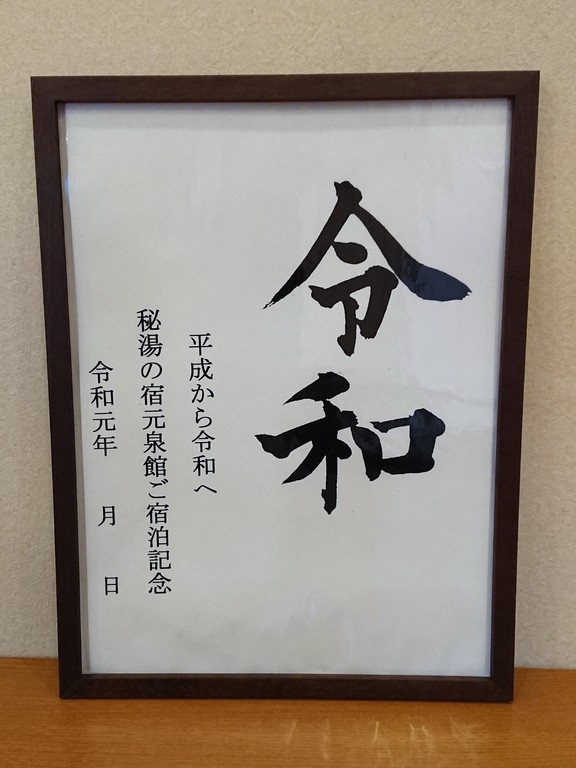 令和
平成から令和へ
秘湯の宿元泉館ご宿泊記念
令和元年　月　日